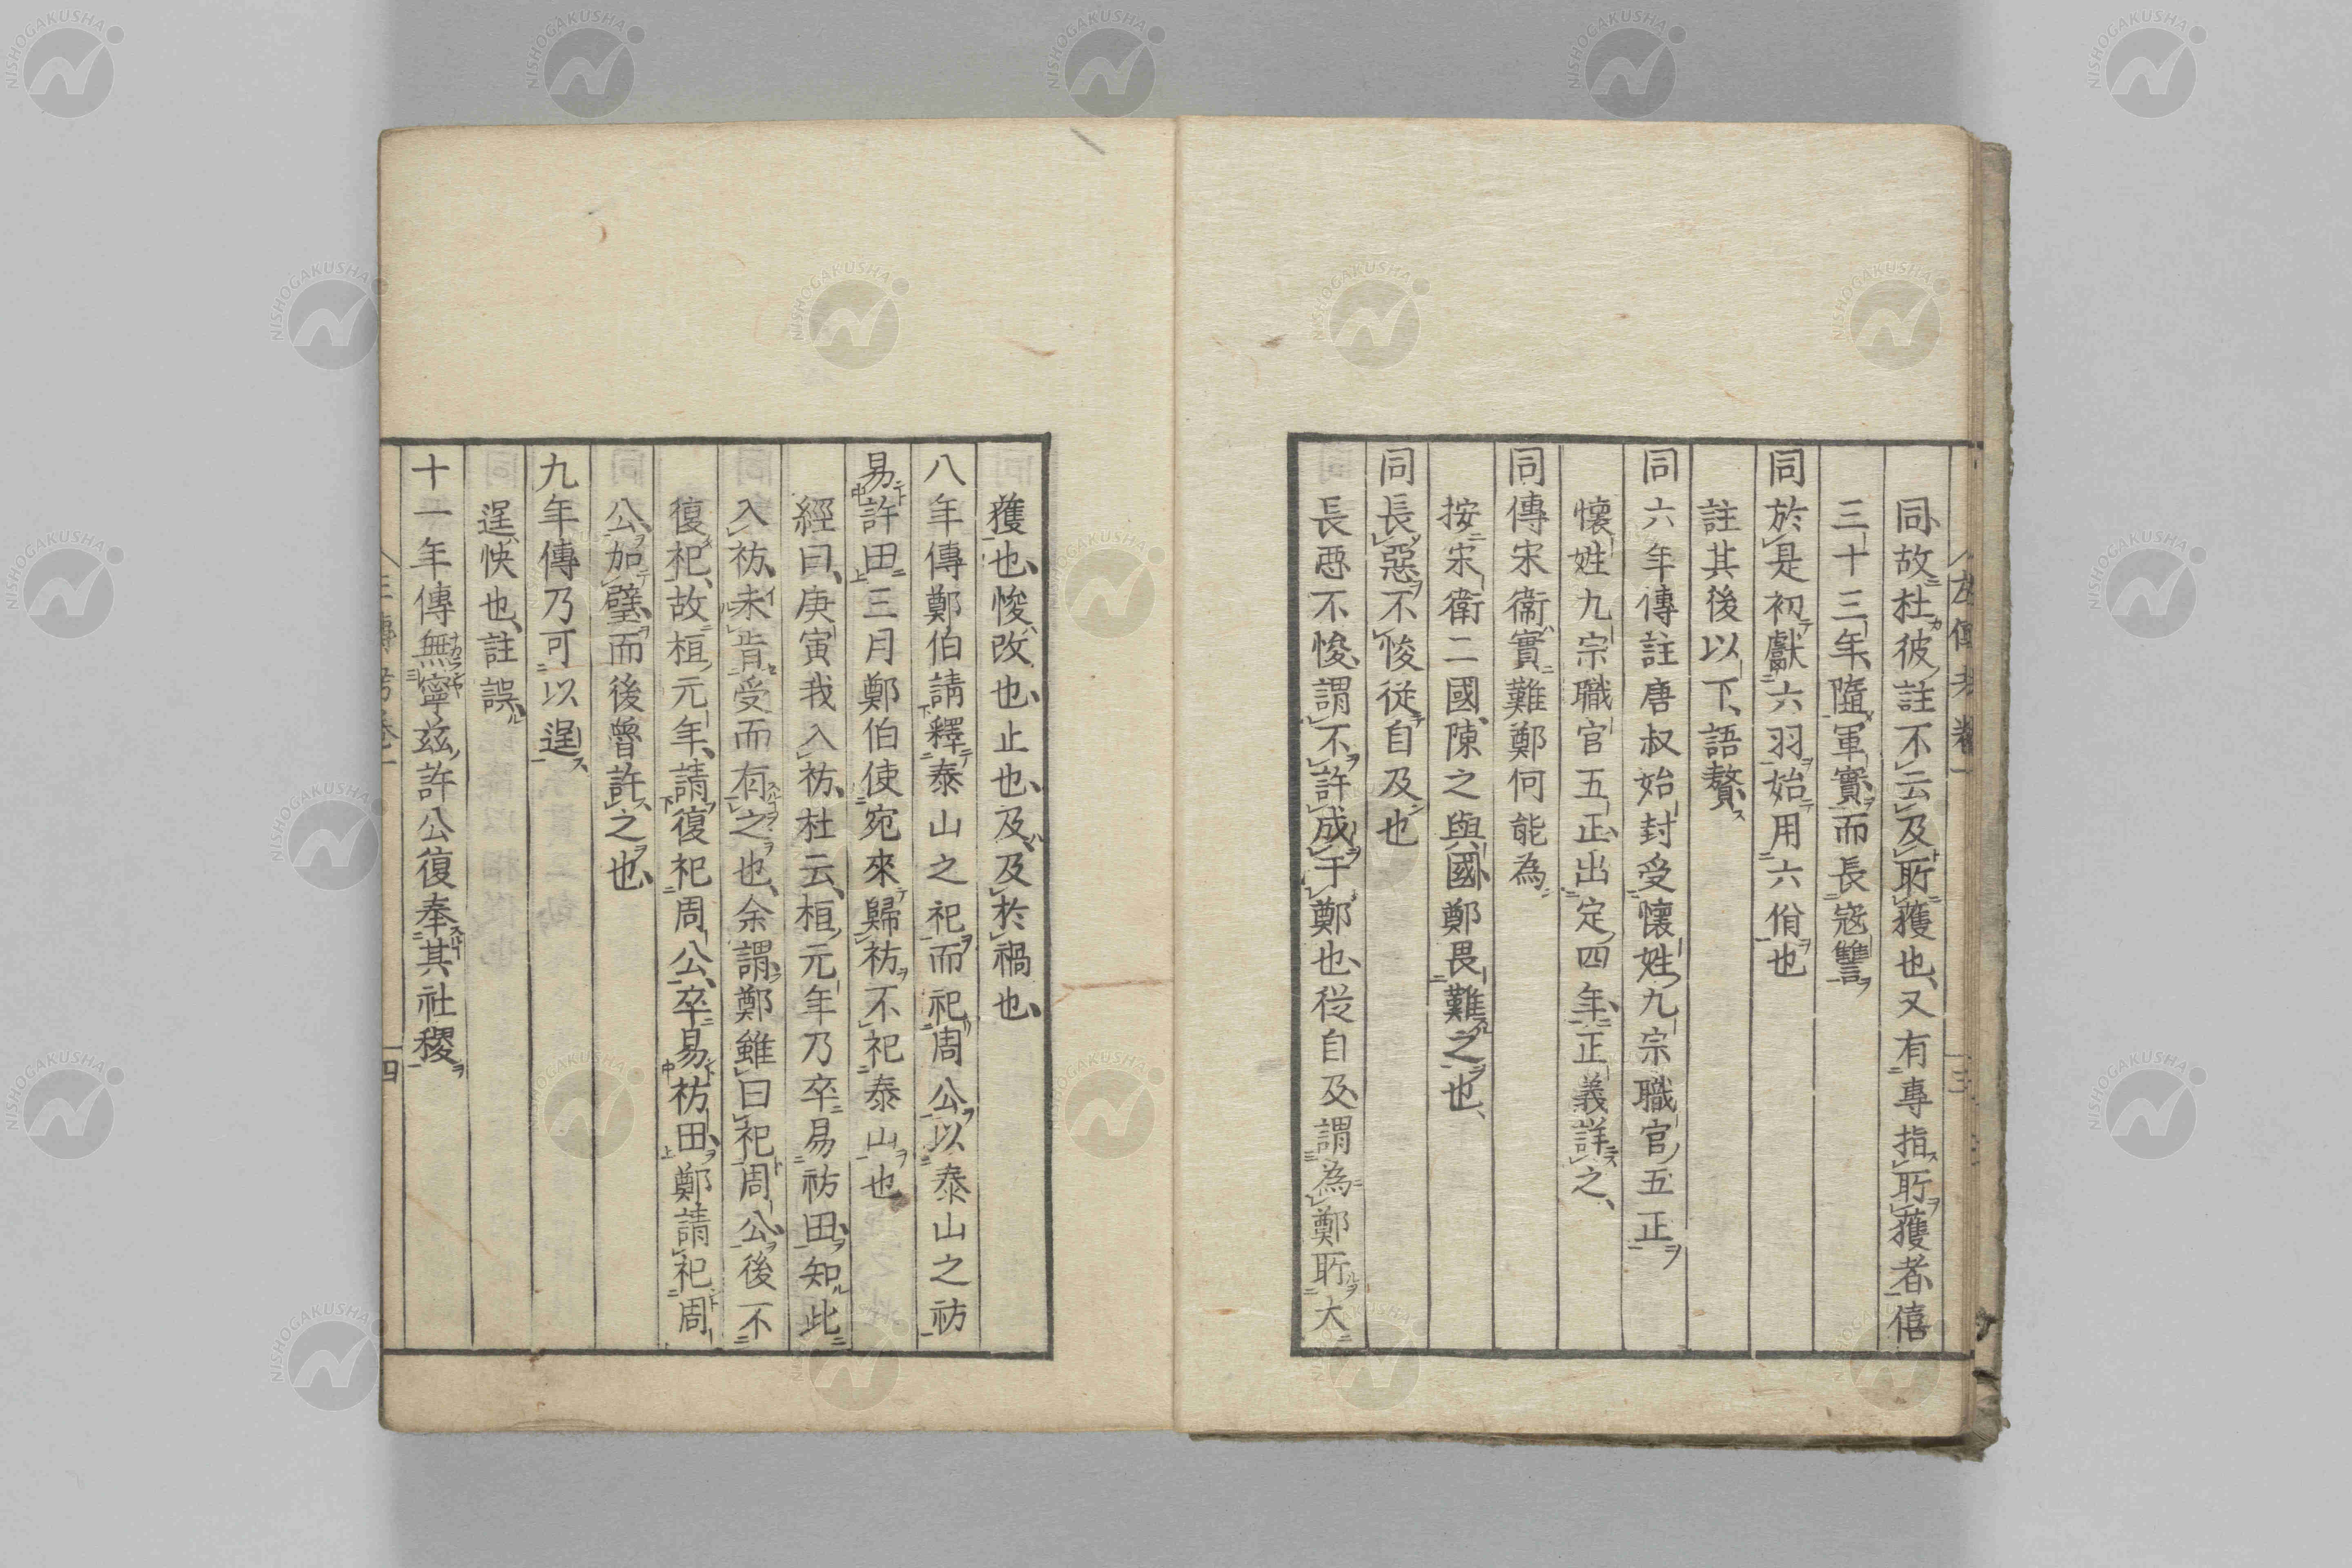 左傳考卷一
三
同故杜彼註不云及所獲也又有專指所獲者僖
三十三年隨軍實而長寇讐
同於是初獻六羽始用六佾也
註其後以下語贅
同六年傳註唐叔始封受懷姓九宗職官五正
懷姓九宗職官五正出定四年正義詳之
同傳宋衞實難鄭何能為
按宋衛二國陳之與國鄭畏難之也
同長惡不悛從自及也
長惡不悛謂不許成于鄭也從自及謂為鄭所大
獲也悛改也止也及及於禍也
八年傳鄭伯請釋泰山之祀而祀周公以泰山之祊
易許田三月鄭伯使宛來歸祊不祀泰山也
經曰庚寅我入祊杜云桓元年乃卒易祊田知此
入祊未肯受而有之也余謂鄭雖曰祀周公後不
復祀故桓元年請復祀周公卒易祊田鄭請祀周
公加璧而後魯許之也
九年傳乃可以逞
逞快也註誤
十一年傳無寧茲許公復奉其社稷
四
NISHOGAKUSHA